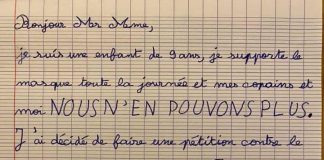 Bonjour Mrs Mme,
je suis une enfant de 9 ans, je supporte le
masque toute la journée et mes copains et
moi NOUS N'EN POUVONS PLUS.
J'ai décidé de faire une pétition contre le